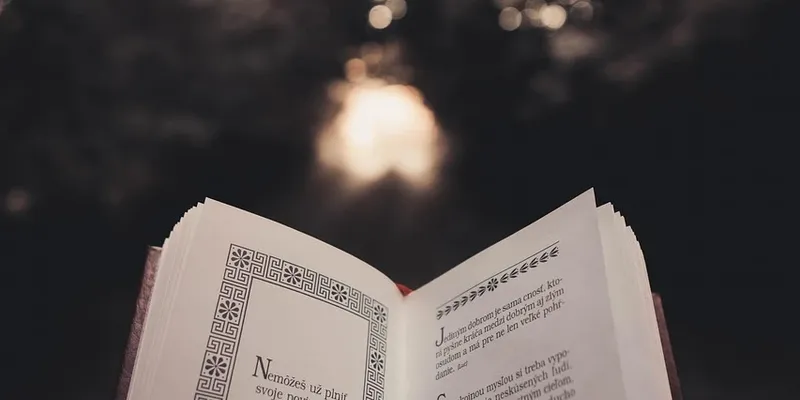 Nemôžeš už plniť
svoje povi
Jediným dobrom je sama cnosť, kto-
rá pyšne kráča medzi dobrým aj zlým
osudom a má pre ne len veľké pohŕ-
danie.
mysľou si treba vypo-
neskúsených ľudí,
cieľom,
ducho